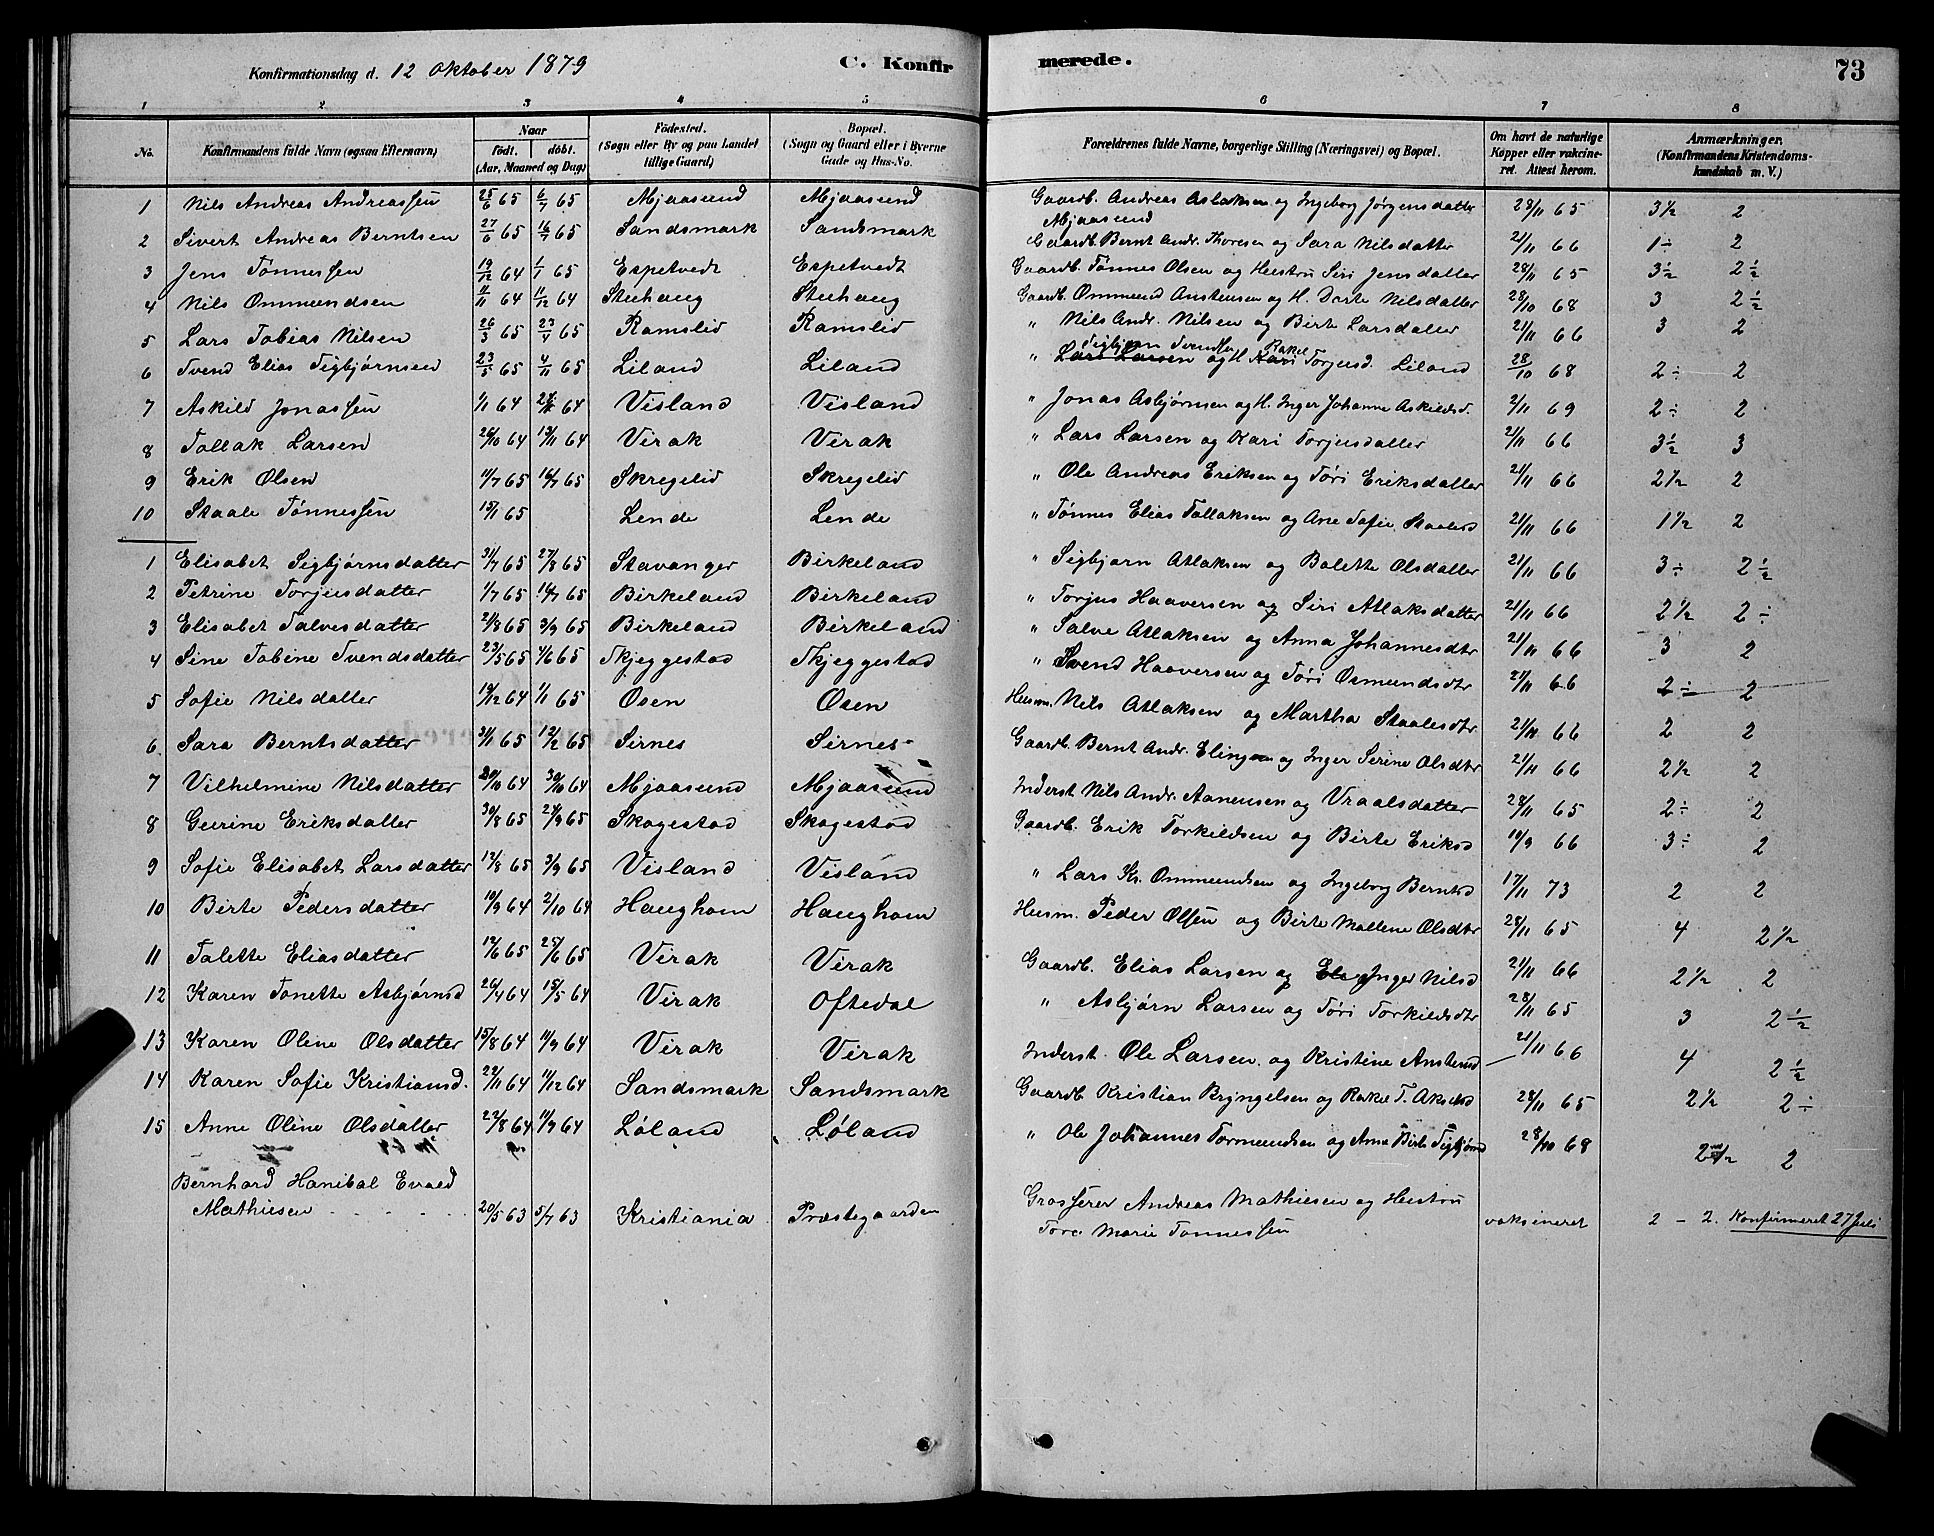 Konfirmationsdag d. 12 Oktober 1879 C. Konfirmerede. 73
1 2 3 4 5 6 7 8
No. Konfirmandens fulde Navn (ogsaa Efternavn) Naar født. døbt. (Aar, Maaned og Dag) Fødested. (Sogn eller By og paa Landet tillige Gaard) Bopæl. (Sogn og Gaard eller i Byerne Gade og Hus-No. Forældrenes fulde Navne, borgerlige Stilling (Næringsvei) og Bopæl. Om havt de naturlige Kopper eller vakcineret. Attest herom. Anmærkninger. (Konfirmandens Kristendomskundskab m. V.)
1 Nils Andreas Andreassen 25/6 65 6/7 65 Mjaasund Mjaasund Gaardb. Andreas Aslaksen og Ingeborg Jørgensdatter Mjaasund 28/11 65 3½ 2
2 Sivert Andreas Berntsen 27/6 65 16/7 65 Sandsmark Sandsmark Gaardb. Bernt Andr. Thoresen og Sara Nilsdatter 21/11 66 1÷ 2
3 Jens Tønnessen 19/12 64 1/1 65 Espetvedt Espetvedt Gaardb. Tønnes Olsen og Hustru Siri Jensdatter 28/11 65 3½ 2½
4 Nils Ommundsen 11/11 64 11/12 64 Stuhaug Stuhaug Gaardb. Ommund Anstensen og H. Dorte Nilsdatter 28/10 68 3 2½
5 Lars Tobias Nilsen 26/3 65 23/4 65 Ramslid Ramslid " Nils Andr. Nilsen og Birte Larsdatter 21/11 66 3 2
6 Svend Elias Sigbjørnsen 23/5 65 4/11 65 Liland Liland " Lars Larsen Sigbjørn Svendsen og H. Kari Rakel Torjusd. Liland 28/10 68 2÷ 2
7 Askild Jonassen 1/11 64 64 Visland Visland " Jonas Asbjørnsen og H. Inger Johanne Askildsd. 2/11 69 2÷ 2
8 Tollak Larsen 26/10 64 13/11 64 Virak Virak " Lars Larsen og Kari Torjusdatter 21/11 66 3½ 3
9 Erik Olsen 11/7 65 16/7 65 Skregelid Skregelid " Ole Andreas Eriksen og Tøri Eriksdatter 21/11 66 2½ 2
10 Staale Tønnessen 15/1 65 Lende Lende " Tønnes Elias Tollaksen og Ane Sofie Staalesd 21/11 66 1½ 2
1 Elisabet Sigbjørnsdatter 31/7 65 27/8 65 Stavanger Birkeland " Sigbjørn Atlaksen og Bolette Olsdatter 21/11 66 3÷ 2½
2 Petrine Torjusdatter 1/7 65 16/7 65 Birkeland Birkeland " Torjus Haaversen og Siri Atlaksdatter 21/11 66 2½ 2÷
3 Elisabet Salvesdatter 21/8 65 3/9 65 Birkeland Birkeland " Salve Atlaksen og Anna Johannesdtr 21/11 66 3 2
4 Sine Tobine Svendsdatter 23/5 65 1/6 65 Skjeggestad Skjeggestad " Svend Haaversen og Tøri Osmundsdtr 21/11 66 2÷ 2
5 Sofie Nilsdatter 19/12 64 1/1 65 Osen Osen Husm. Nils Atlaksen og Martha Staalesdtr 21/11 66 2 2
6 Sara Berntsdatter 31/1 65 12/2 65 Sirnes Sirnes Gaardb. Bernt Andr. Elingsen og Inger Serine Olsdtr 21/11 66 2½ 2
7 Vilhelmine Nilsdatter 20/10 64 30/10 64 Mjaasund Mjaasund Inderst Nils Andr. Aanensen og Vraalsdatter 28/11 65 2÷ 2
8 Gurine Eriksdatter 30/8 65 24/9 65 Skogestad Skogestad Gaardb. Erik Torkildsen og Birte Eriksd 10/9 66 3÷ 2
9 Sofie Elisabet Larsdatter 12/8 65 3/9 65 Visland Visland " Lars Kr. Ommundsen og Ingeborg Berntsd 17/11 73 2 2
10 Birte Pedersdatter 10/9 64 2/10 64 Haughom Haughom Husm. Peder Olsen og Birte Mallene Olsdtr 28/11 65 4 2½
11 Talette Eliasdatter 12/6 65 25/6 65 Virak Virak Gaardb. Elias Larsen og Inger Nilsd 21/11 66 2½ 2
12 Karen Tonette Asbjørnsd 26/4 64 15/5 64 Virak Oftedal " Asbjørn Larsen og Tøri Torkildsdtr 28/11 65 3 2½
13 Karen Oline Olsdatter 15/8 64 11/9 64 Virak Virak Inderst. Ole Larsen og Kristine Anstensd 21/11 66 4 2½
14 Karen Sofie Kristiansd. 22/11 64 11/12 64 Sandsmark Sandsmark Gaardb Kristian Bryngelsen og Rakel T. Akselsd 28/11 65 2½ 2÷
15 Anne Oline Olsdatter 22/8 64 11/9 64 Løland Løland " Ole Johannes Tormundsen og Anne Birte Sigbjørnsd 28/10 68 2½ 2
Bernhard Hanibal Evald Mathiesen 20/5 63 5/7 63 Kristiania Præstegaarden Grosserer Andreas Mathiesen og Hustru Tora Marie Tønnessen vaksineret 2 – 2. Konfirmeret 27 Juli